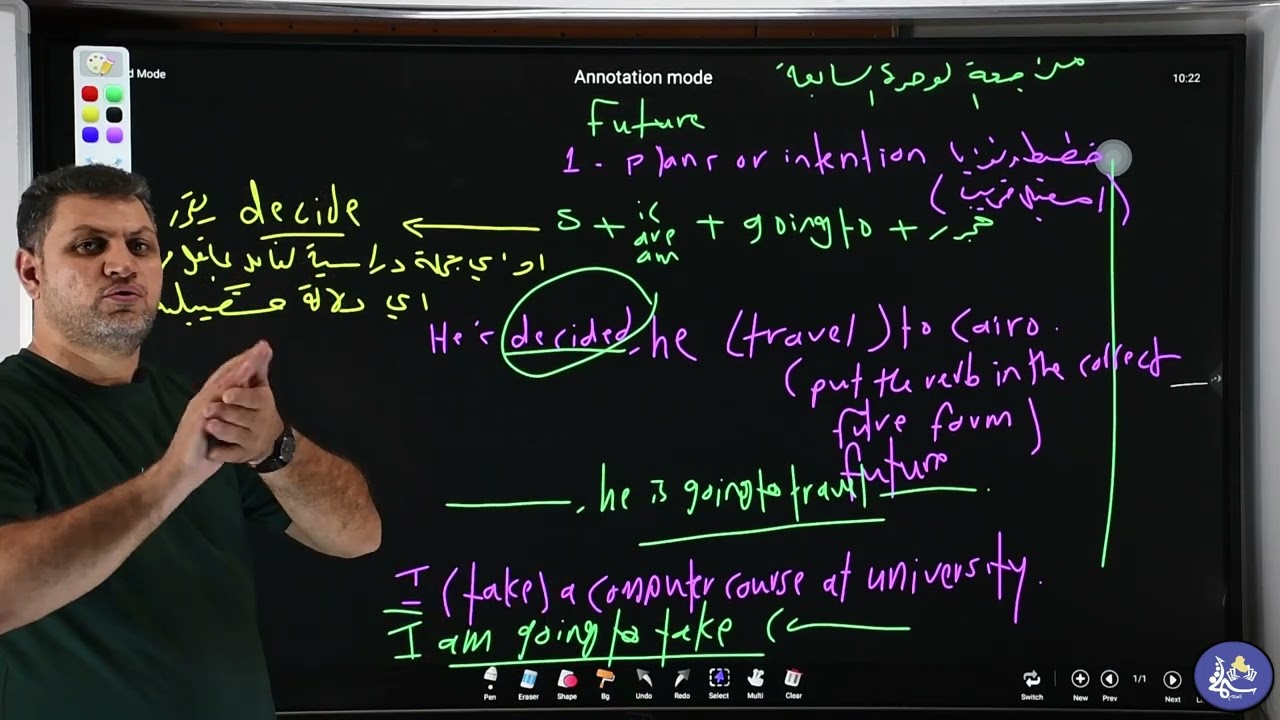 d Mode
Annotation mode
10:22
مراجعة لوحدة السابعة
Future
1 - plans or intention
S + is are am + going to + مجرد
decide يقرر
اي دلالة مستقبلية
He's decided, he (travel) to Cairo.
(put the verb in the correct
future form)
future
, he is going to travel .
I (take) a computer course at university.
I am going to take
Pen Eraser Shape Bg Undo Redo Select Multi Clear
Switch New Prev 1/1 Next